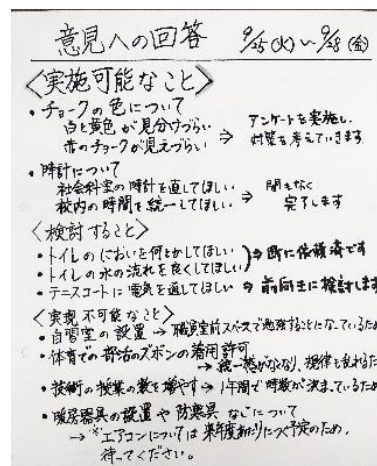 意見への回答 9/25(火)〜9/28(金)
〈実施可能なこと〉
・チョークの色について
白と黄色が見分けづらい
赤のチョークが見えづらい
→ アンケートを実施し、
対策を考えていきます
・時計について
社会科室の時計を直してほしい
校内の時間を統一してほしい
→ 間もなく
完了します
〈検討すること〉
・トイレのにおいを何とかしてほしい
・トイレの水の流れを良くしてほしい
→ 既に依頼済です
・テニスコートに電気を通してほしい → 前向きに検討します
〈実現不可能なこと〉
・自習室の設置 → 職員室前スペースで勉強することになっているため
・体育での部活のズボンの着用許可
→ 統一感がなくなり、規律も乱れるた
・技術の授業の数を増やす → 1年間で時数が決まっているため
・暖房器具の設置や防寒具などについて
→ ※エアコンについては来年度あたりにつく予定のため、
待ってください。